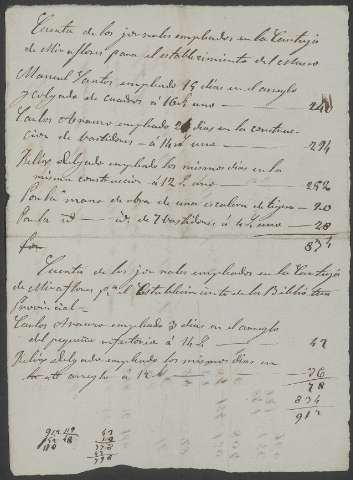 Cuenta de los jornales empleados en la Cartuja
de Miraflores para el establecimiento del Museo
Manuel Santos empleado 15 dias en el arreglo
y colgado de cuadros á 16 r.s uno — 240
Carlos empleado 21 dias en la construc-
cion de bastidores á 14 r.s uno — 294
Julian Delgado empleado los mismos dias en la
misma construccion á 12 r.s uno — 252
Por la mano de obra de una escalera de tigera — 20
Por la id — id. de 7 bastidores á 4 r.s uno — 28
834
Cuenta de los jornales empleados en la Cartuja
de Miraflores p.a el Establecimiento de la Biblioteca
Provincial —
Carlos empleado 3 dias en el arreglo
del pequeño refectorio á 14 r.s — 42
Julian Delgado empleado los mismos dias en
arreglo á 12 r.s — 36
78
834
912